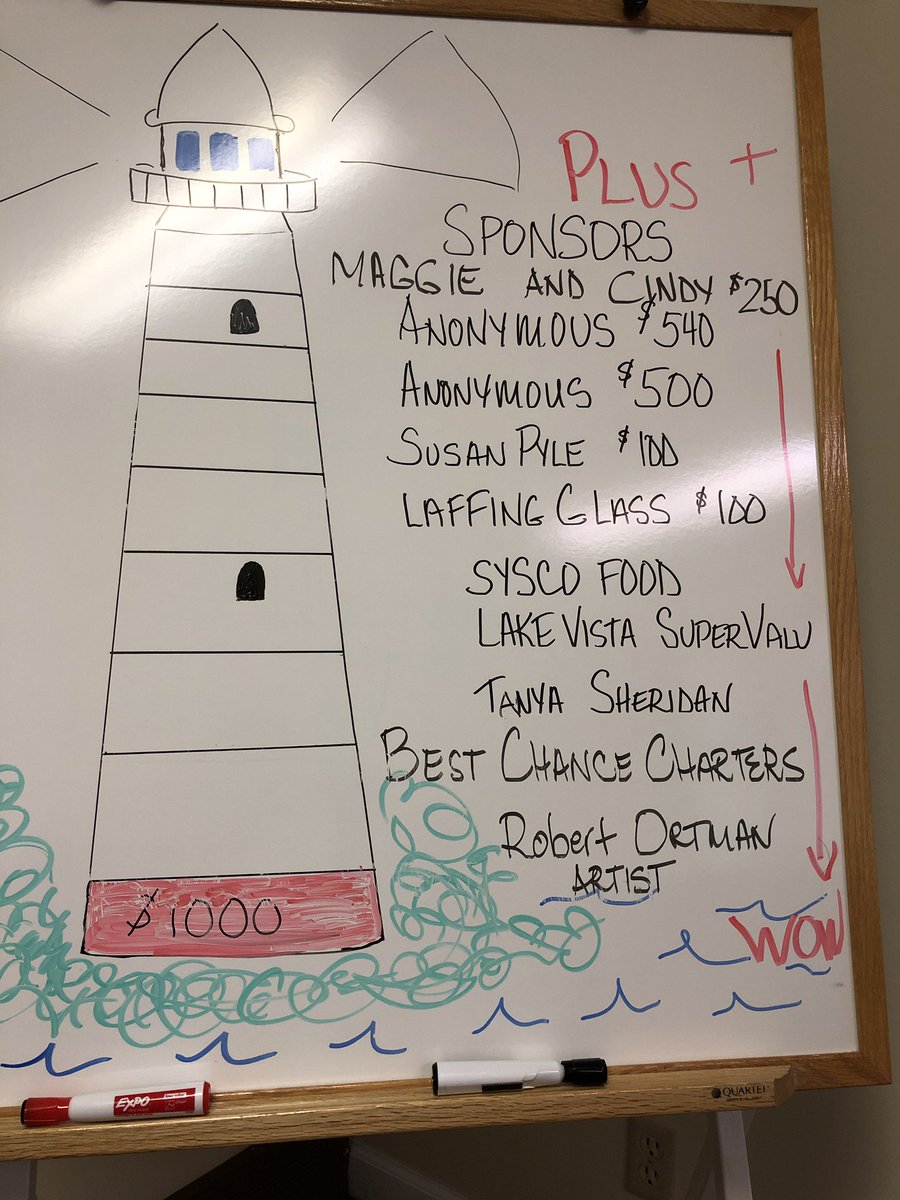 PLUS +
SPONSORS
MAGGIE AND CINDY $250
ANONYMOUS $540
ANONYMOUS $500
SUSAN PYLE $100
LAFFING GLASS $100
SYSCO FOOD
LAKE VISTA SUPERVALU
TANYA SHERIDAN
BEST CHANCE CHARTERS
Robert ORTMAN
ARTIST
$1000
WOW
EXPO
QUARTET